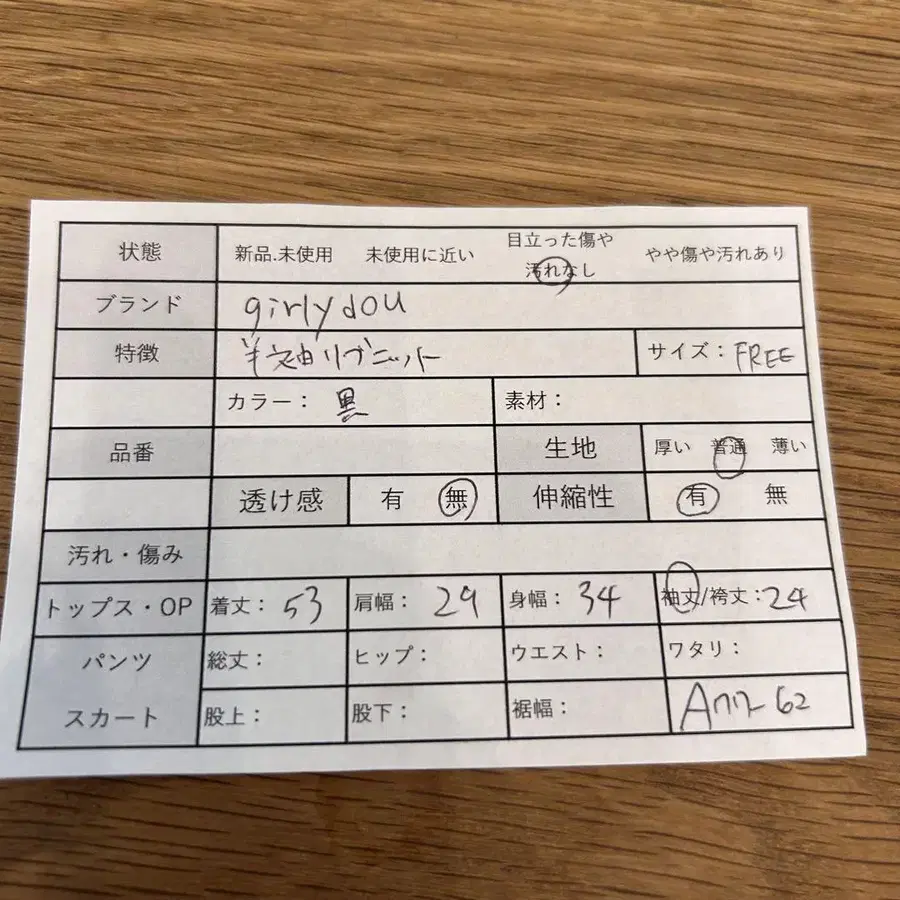 状態 新品.未使用 未使用に近い 目立った傷や 汚れなし やや傷や汚れあり
ブランド girlydou
特徴 半袖リブニット サイズ： FREE
カラー： 黒 素材：
品番 生地 厚い 普通 薄い
透け感 有 無 伸縮性 有 無
汚れ・傷み
トップス・OP 着丈： 53 肩幅： 29 身幅： 34 袖丈/袴丈： 24
パンツ 総丈： ヒップ： ウエスト： ワタリ：
スカート 股上： 股下： 裾幅： 62